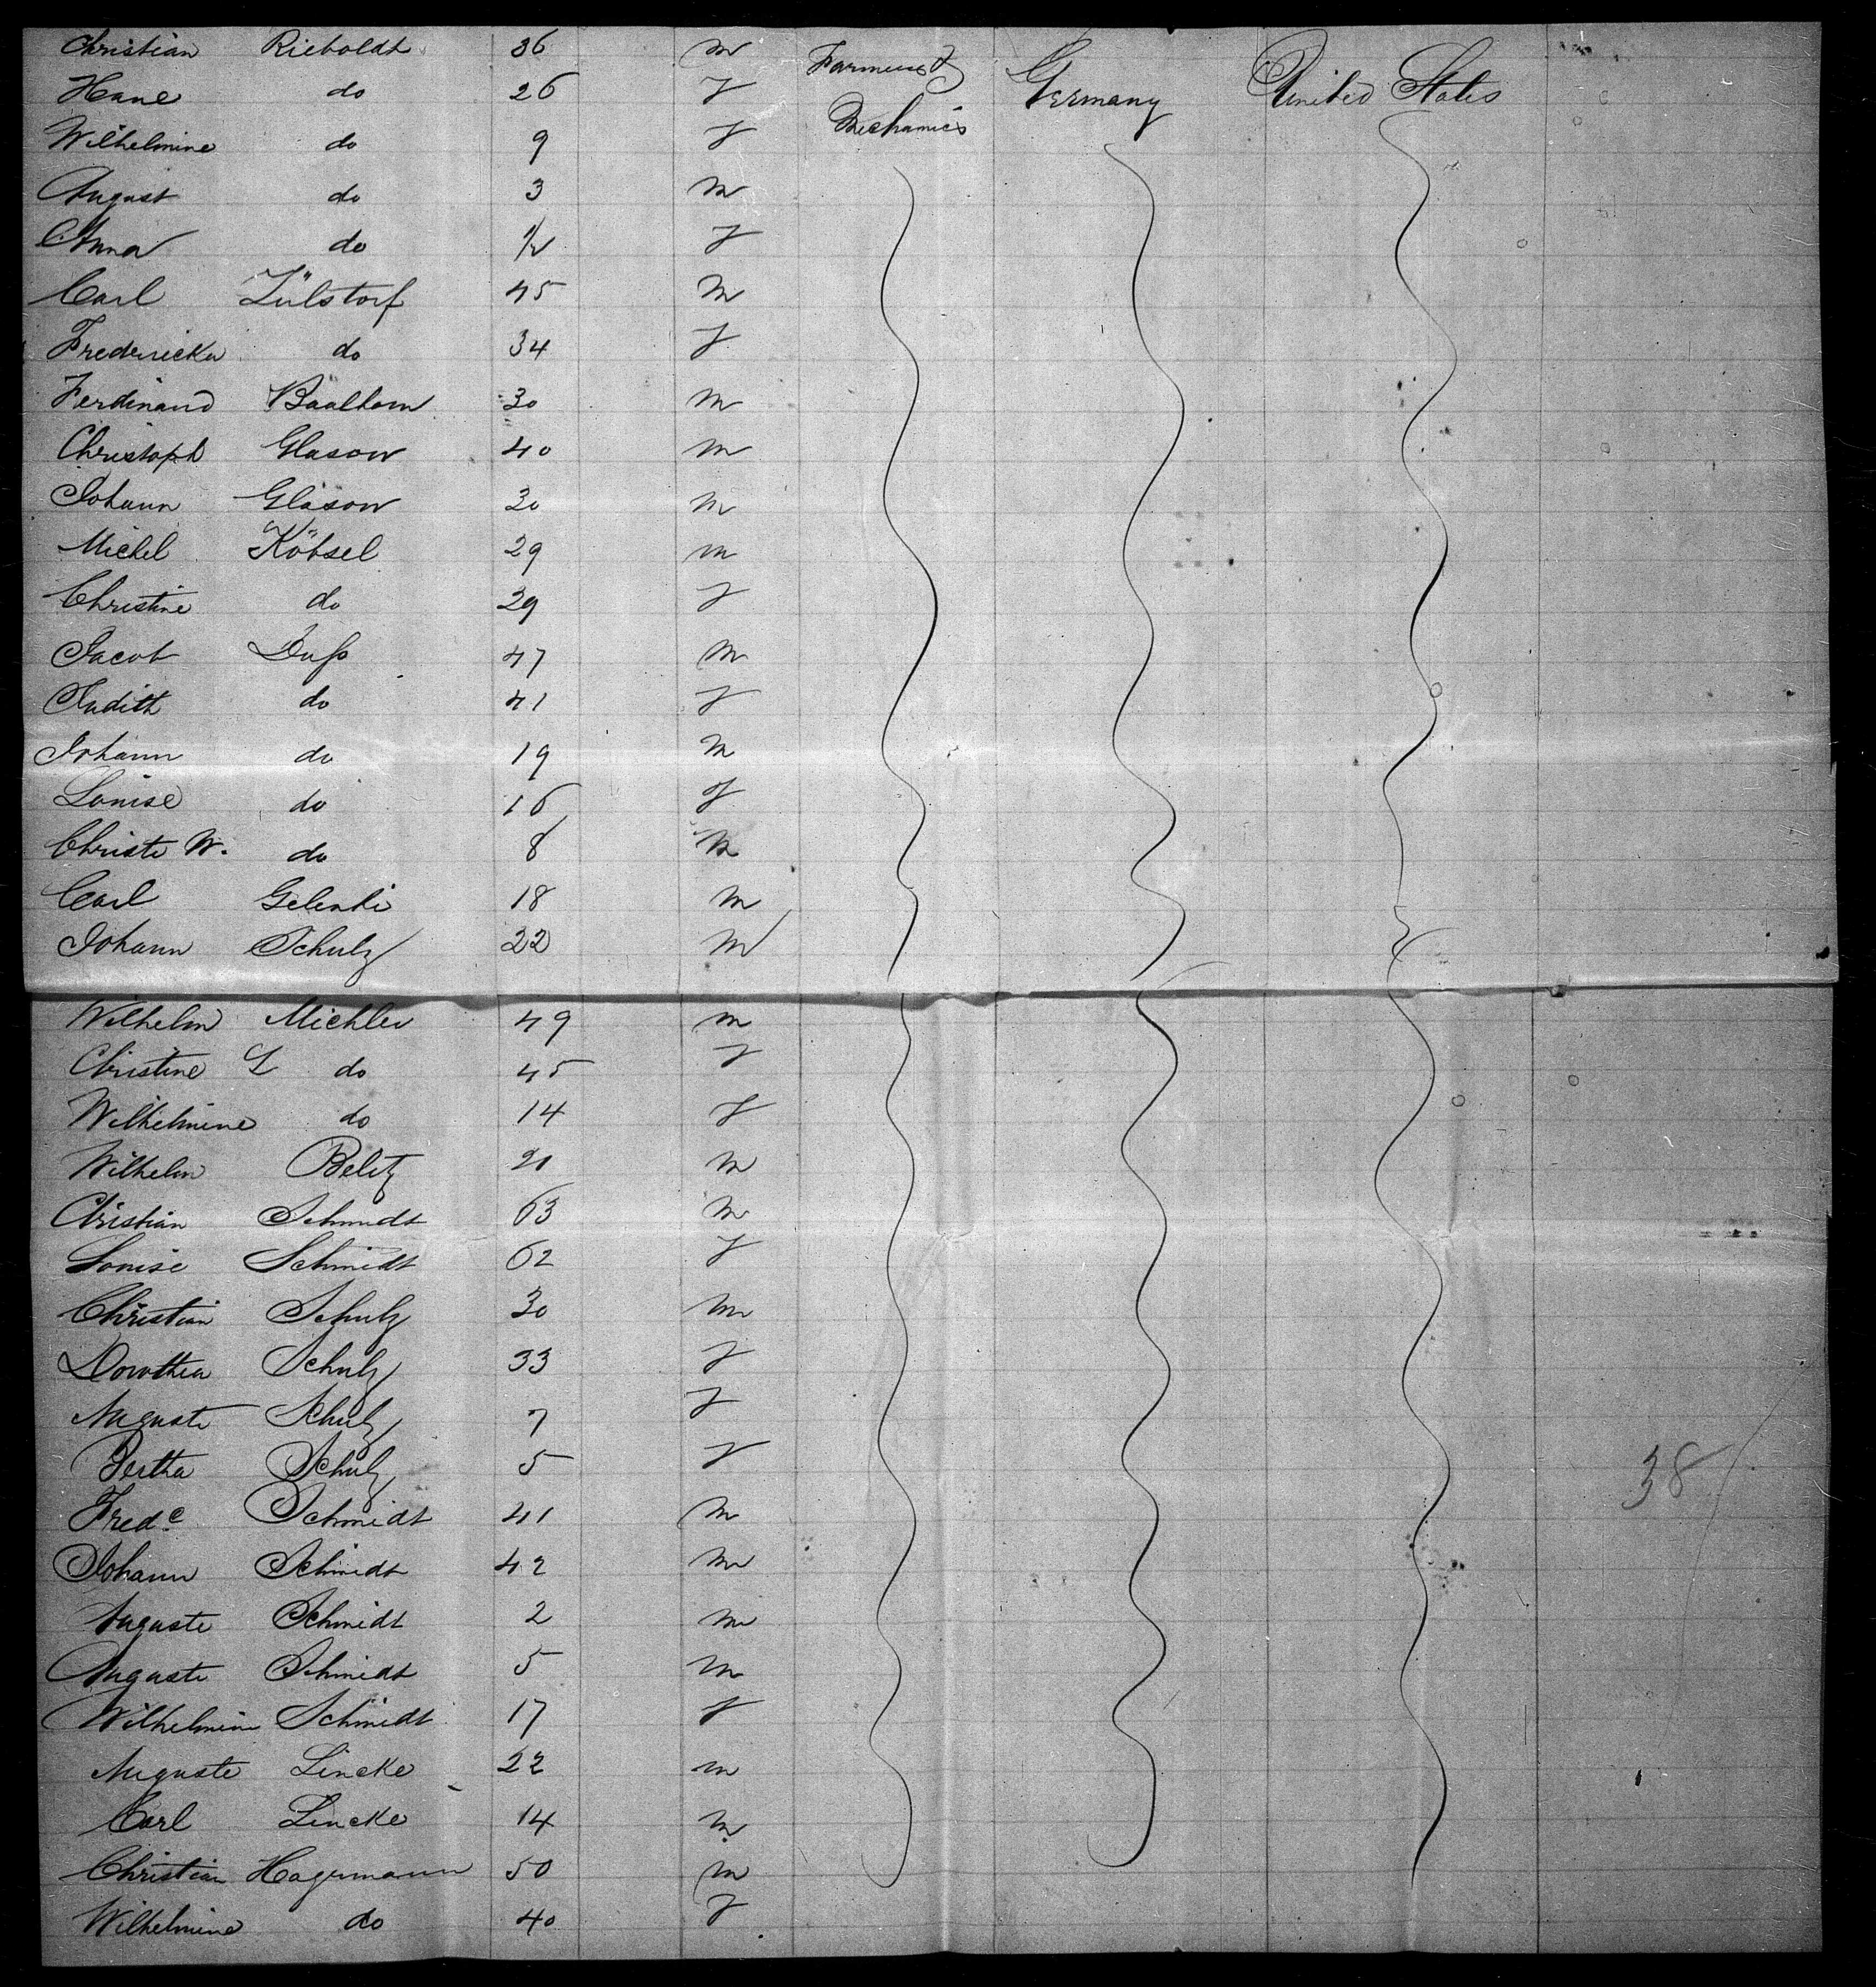 Christian Rieboldt 36 m Farmers & Germany United States
Hane do 26 f Mechanics
Wilhelmine do 9 f
August do 3 m
Anna do 1/2 f
Carl Zülstorf 45 m
Fredericka do 34 f
Ferdinand Baalhorn 30 m
Christoph Glasow 40 m
Johann Glasow 30 m
Michel Köbsel 29 m
Christine do 29 f
Jacob Duss 47 m
Judith do 41 f
Johann do 19 m
Louise do 16 f
Christe W. do 8 m
Carl Gelenki 18 m
Johann Schulz 22 m
Wilhelm Michler 49 m
Christine L do 45 f
Wilhelmine do 14 f
Wilhelm Belitz 21 m
Christian Schmidt 63 m
Louise Schmidt 62 f
Christian Schulz 30 m
Dorothea Schulz 33 f
Auguste Schulz 7 f
Bertha Schulz 5 f 38
Fredc Schmidt 41 m
Johann Schmidt 42 m
Auguste Schmidt 2 m
Auguste Schmidt 5 m
Wilhelmine Schmidt 17 f
Auguste Lincke 22 m
Carl Lincke 14 m
Christian Hagermann 50 m
Wilhelmine do 40 f